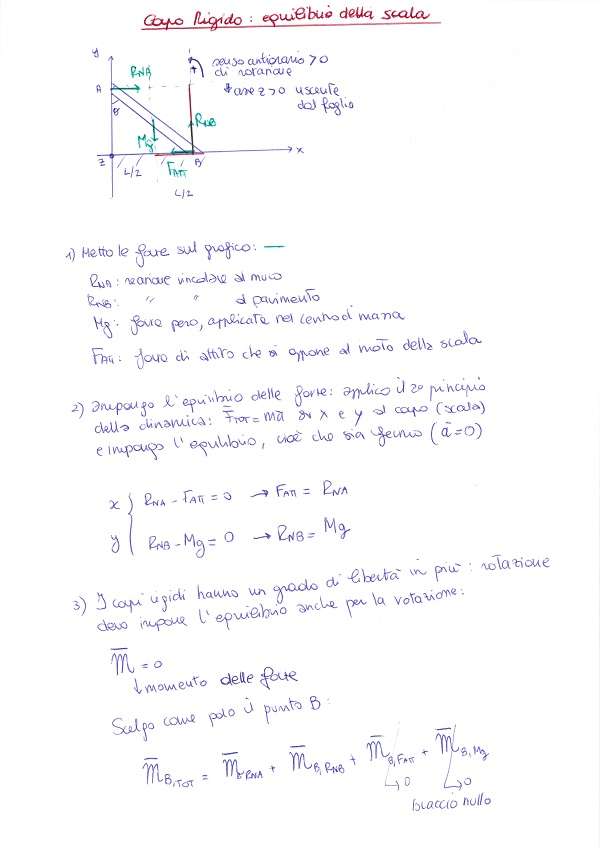 Corpo Rigido: equilibrio della scala
y
senso antiorario > 0
di rotazione
asse z > 0 uscente
dal foglio
RNA
A
θ
RNB
Mg
x
z
B
FATT
L/2
L/2
1) Metto le forze sul grafico: —
RNA: reazione vincolare al muro
RNB: " " al pavimento
Mg: forza peso, applicata nel centro di massa
FATT: forza di attrito che si oppone al moto della scala
2) Impongo l'equilibrio delle forze: applico il 2o principio
della dinamica: FTOT = ma su x e y al corpo (scala)
e impongo l'equilibrio, cioè che sia fermo (a = 0)
x { RNA - FATT = 0 → FATT = RNA
y { RNB - Mg = 0 → RNB = Mg
3) I corpi rigidi hanno un grado di libertà in più: rotazione
devo imporre l'equilibrio anche per la rotazione:
M = 0
↓ momento delle forze
Scelgo come polo il punto B:
M B,TOT = M B RNA + M B,RNB + M B,FATT + M B,Mg
↳ 0 ↳ 0
braccio nullo